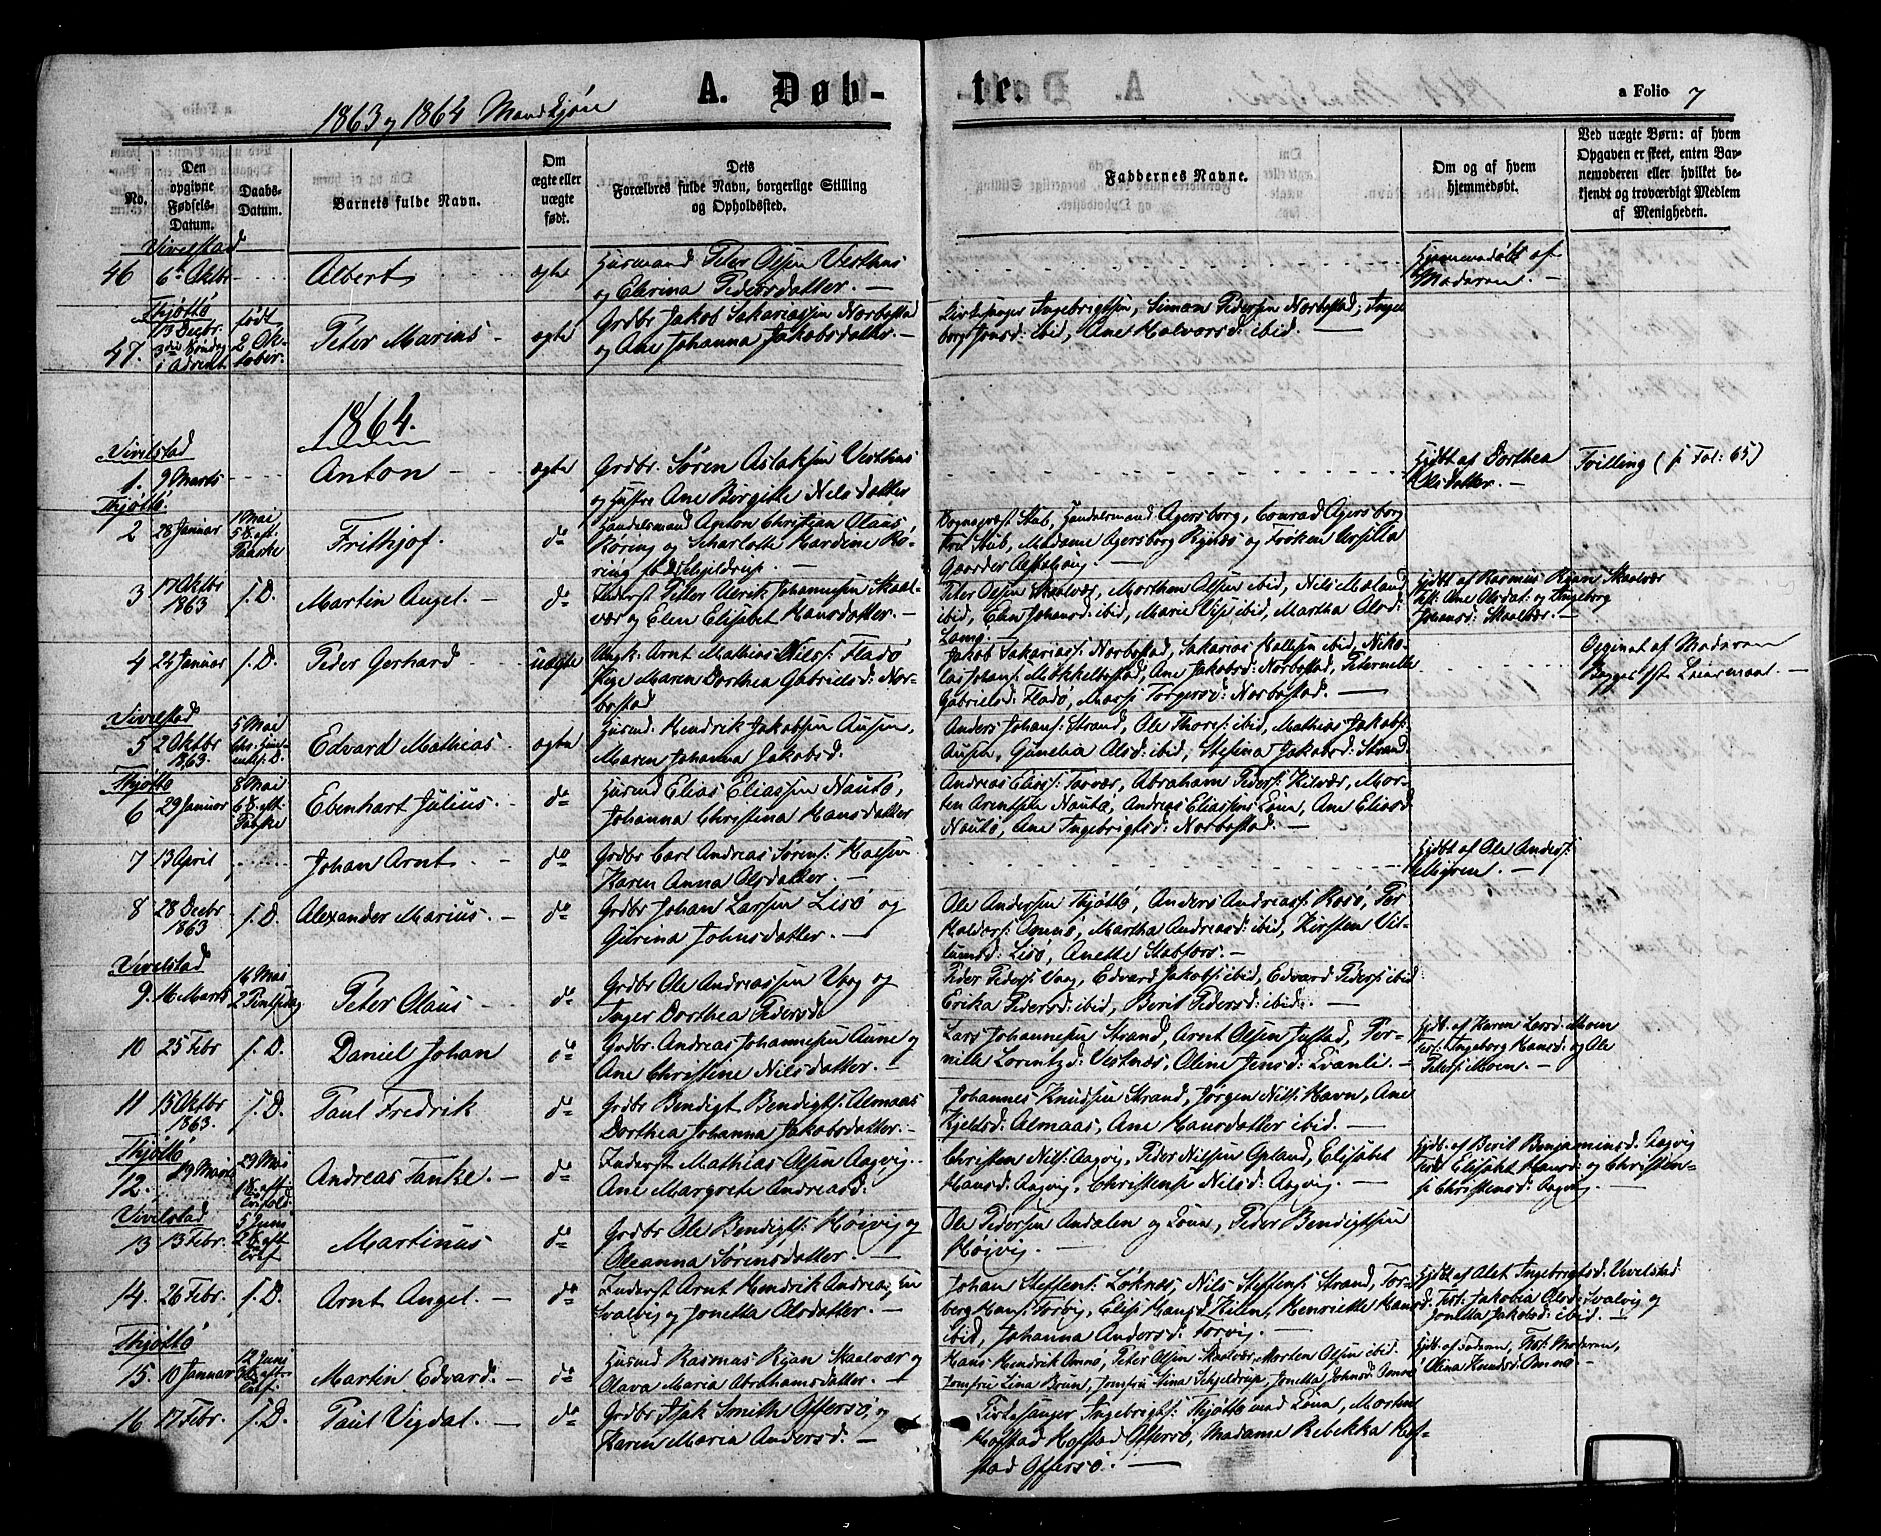 A. Døb-
te.
a Folio 7
1863 og 1864 Mandkjøn
No.
Den opgivne Fødsels-Datum.
Daabs-Datum.
Barnets fulde Navn.
Om ægte eller uægte født.
Dets Forældres fulde Navn, borgerlige Stilling og Opholdssted.
Faddernes Navne.
Om og af hvem hjemmedøbt.
Ved uægte Børn: af hvem Opgaven er skeet, enten Barnemoderen eller hvilket bekjendt og troværdigt Medlem af Menigheden.
Vivelstad
46 6te Oktbr Albert ægte Husmand Peter Olsen Vesthus
og Elerina Pedersdatter. Hjemmedøbt af
Moderen.
Thjøttø
47. 13 Decbr 3die Søndag i Advent født 2 Oktober. Peter Marius ægte Grdbr Jakob Sakariassen Norbostad
og Ane Johanna Jakobsdatter.
Kirkesanger Ingebrigtsen, Simon Pedersen Norbostad, Inge
borg Jonsd: ibid, Ane Halvorsd: ibid.
1864.
Vivelstad
1. 9 Marts Anton ægte Grdbr. Søren Aslaksen Vesthus
og Hustru Ane Birgitte Nilsdatter
Hjdbt af Dorthea
Olsdatter.
Tvilling (s Fol: 65)
Thjøttø.
2 28 Januar 1 Mai 5 S. eft. Paaske Frithjof. do Handelsmand Anton Christian Olaus
Røring og Scharlotte Hardine Rø-
ring fød Schjeldrup.
Sognepræst Stub, Handelsmand Agersborg, Conrad Agersborg
Fru Stub, Madame Agersborg og Frøken
Gaarder
3 17 Oktbr 1863 s. D. Martin Angel. do Inderst Peter Ulrik Johannesen Skaal-
vær og Elen Elisabet Hansdatter.
Peter Olsen Skaalvær, Morthen Olsen ibid, Nils Moland
ibid, Elen Johansd: ibid, Marie ibid, Martha Olsd:
Hjdbt af Rasmus Ryan Skaalvær
Test: Ane Olsdat: og Ingeborg
Johansd: Skaalvær.
4 24 Januar s. D. Peder Gerhard uægte Ungk. Arnt Mathias Nilss: Fladø
Pige Maren Dorthea Gabrielsd: Nor-
bostad
Jakob Sakariass: Norbostad, Sakarias ibid, Niko-
lai Johans: Mekkelbostad, Ane Jakobsd: Norbostad, Pernelle
Gabrielsd: Fladø, Torgersd: Norbostad.
Opgivet af Moderen
Begges 1ste Leiermaal.
Vivelstad
5 2 Oktbr 1863. 5 Mai Edvard Mathias ægte Husmd. Hendrik Jakobsen Ausen,
Maren Johanna Jakobsd.
Anders Johans: Strand, Ole Thores: ibid, Mathias Jakobs:
Ausen, Gunelia Olsd: ibid, Stefina Jakobsd: Strand
Thjøttø
6 29 Januar 8 Mai 6 S. eft. Paaske Ebenhart Julius. do Husmd Elias Eliassen Nautø,
Johanna Christina Hansdatter
Andreas Eliass: Torvær, Abraham Peders: Kilvær, Mor-
ten Arentsen Nautø, Andreas Eliassens Kona, Ane Eliasd:
Nautø, Ane Ingebrigtsd: Norbostad.
7 13 April Johan Arnt do Grdbr Carl Andreas Sørens: Halsen
Karen Anna Olsdatter.
Hjdbt af Ole Anders:
8 28 Decbr 1863 s. D. Alexander Marius. do Grdbr Johan Larsen Lisø og
Gurina Johnsdatter.
Ole Andersen Thjøttø, Anders Andreas: Rosø, Per
Omnø, Martha Andreasd: ibid, Kirsten Vil-
lumsd: Lisø, Anette Stabfors.
Vivelstad
9. 16 Marts 16 Mai 2 Pintsdag Peter Olaus do Grdbr Ole Andreassen Vaag og
Inger Dorthea Pedersd.
Peder Peders: Vaag, Edvard Jakobs: ibid, Edvard Peders: ibid
Erika Pedersd: ibid, Berit Pedersd: ibid.
10 25 Febr s. D. Daniel Johan do Grdbr. Andreas Johannesen Aune og
Ane Christine Nilsdatter.
Lars Johannesen Strand, Arnt Olsen Justad, Per-
nille Lorentzd: Vestnæs, Oline Jensd: Evanli.
Hjdbt. af Karen Larsd: Moen
Test: Ingeborg Hansd: og Ole
Peters: Moen.
11 15 Oktbr 1863. s. D. Paul Fredrik do Grdbr Bendigt Bendigts: Almaas
Dorthea Johanna Jakobsdatter.
Johannes Knudsen Strand, Jørgen Nils: Havn, Ane
Kjeldsd: Almaas, Ane Hansdatter ibid.
Thjøttø
12. 19 Marts 29 Mai 1 S. eft. Andreas Tanke. do Inderst Mathias Olsen Aagvig.
Ane Margrete Andreasd:
Christen Nils: Aagvig, Peder Nilsen Opland, Elisabet
Hansd: Aagvig, Christense Nilsd: Aagvig.
Hjdbt. af Berit Benjaminsd: Aagvig
Test Elisabet Hansd: og Christen-
se Christensd: Aagvig.
Vivelstad
13 13 Febr. 5 Juni 2 S. eft Martinus do Grdbr Ole Bendigts: Høivig og
Oleanna Sørensdatter.
Ole Pedersen Andalen og Kona, Peder Bendigtsen
Høivig.
14. 26 Febr. s. D. Arnt Angel. do Inderst Arnt Hendrik Andreassen
Svalvig og Jonetta Olsdatter.
Johan Steffens: Løknæs, Nils Steffens: Strand, Tor-
berg Hans: Torvig, Elise Hansd: Henriette Hansd:
ibid, Johanna Andersd: Torvig.
Hjdbt af Alet Ingebrigtsd: Vevelstad
Test: Jakobia Olsd: Svalvig og
Jonetta Jakobsd: ibid.
Thjøttø
15. 10 Januar 12 Juni 3 S. efter Martin Edvard. do Husmd Rasmus Ryan Skaalvær og
Olava Maria Abrahamsdatter.
Hans Hendrik Omnø, Peter Olsen Skaalvær, Morten Olsen ibid.
Jomfru Lina Brun, Jomfru Stina Schjeldrup, Jonetta Johnsd: Omnø
Hjdbt. af Faderen, Test: Moderen,
Olina Knudsd: Omnø
16 17 Febr. s. D. Paul Vigdal. do Grdbr Isak Smith Offersø, og
Karen Maria Andersd:
Kirkesanger Ingebrigts: Thjøttø med Kona, Morten
Hofstad Hofstad Offersø, Madame Rebekka Hof-
stad Offersø.